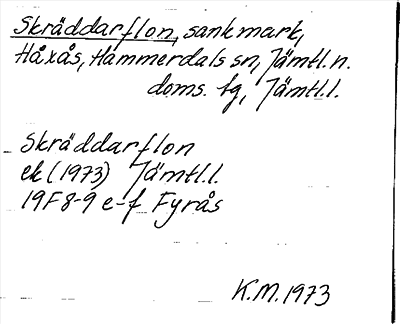 Skräddarflon, sank mark,
Håxås, Hammerdals sn, Jämtl. n.
doms. fg, Jämtl.l.
Skräddarflon
ek (1973) Jämtl.l.
19F 8-9 e-f Fyrås
K.M. 1973